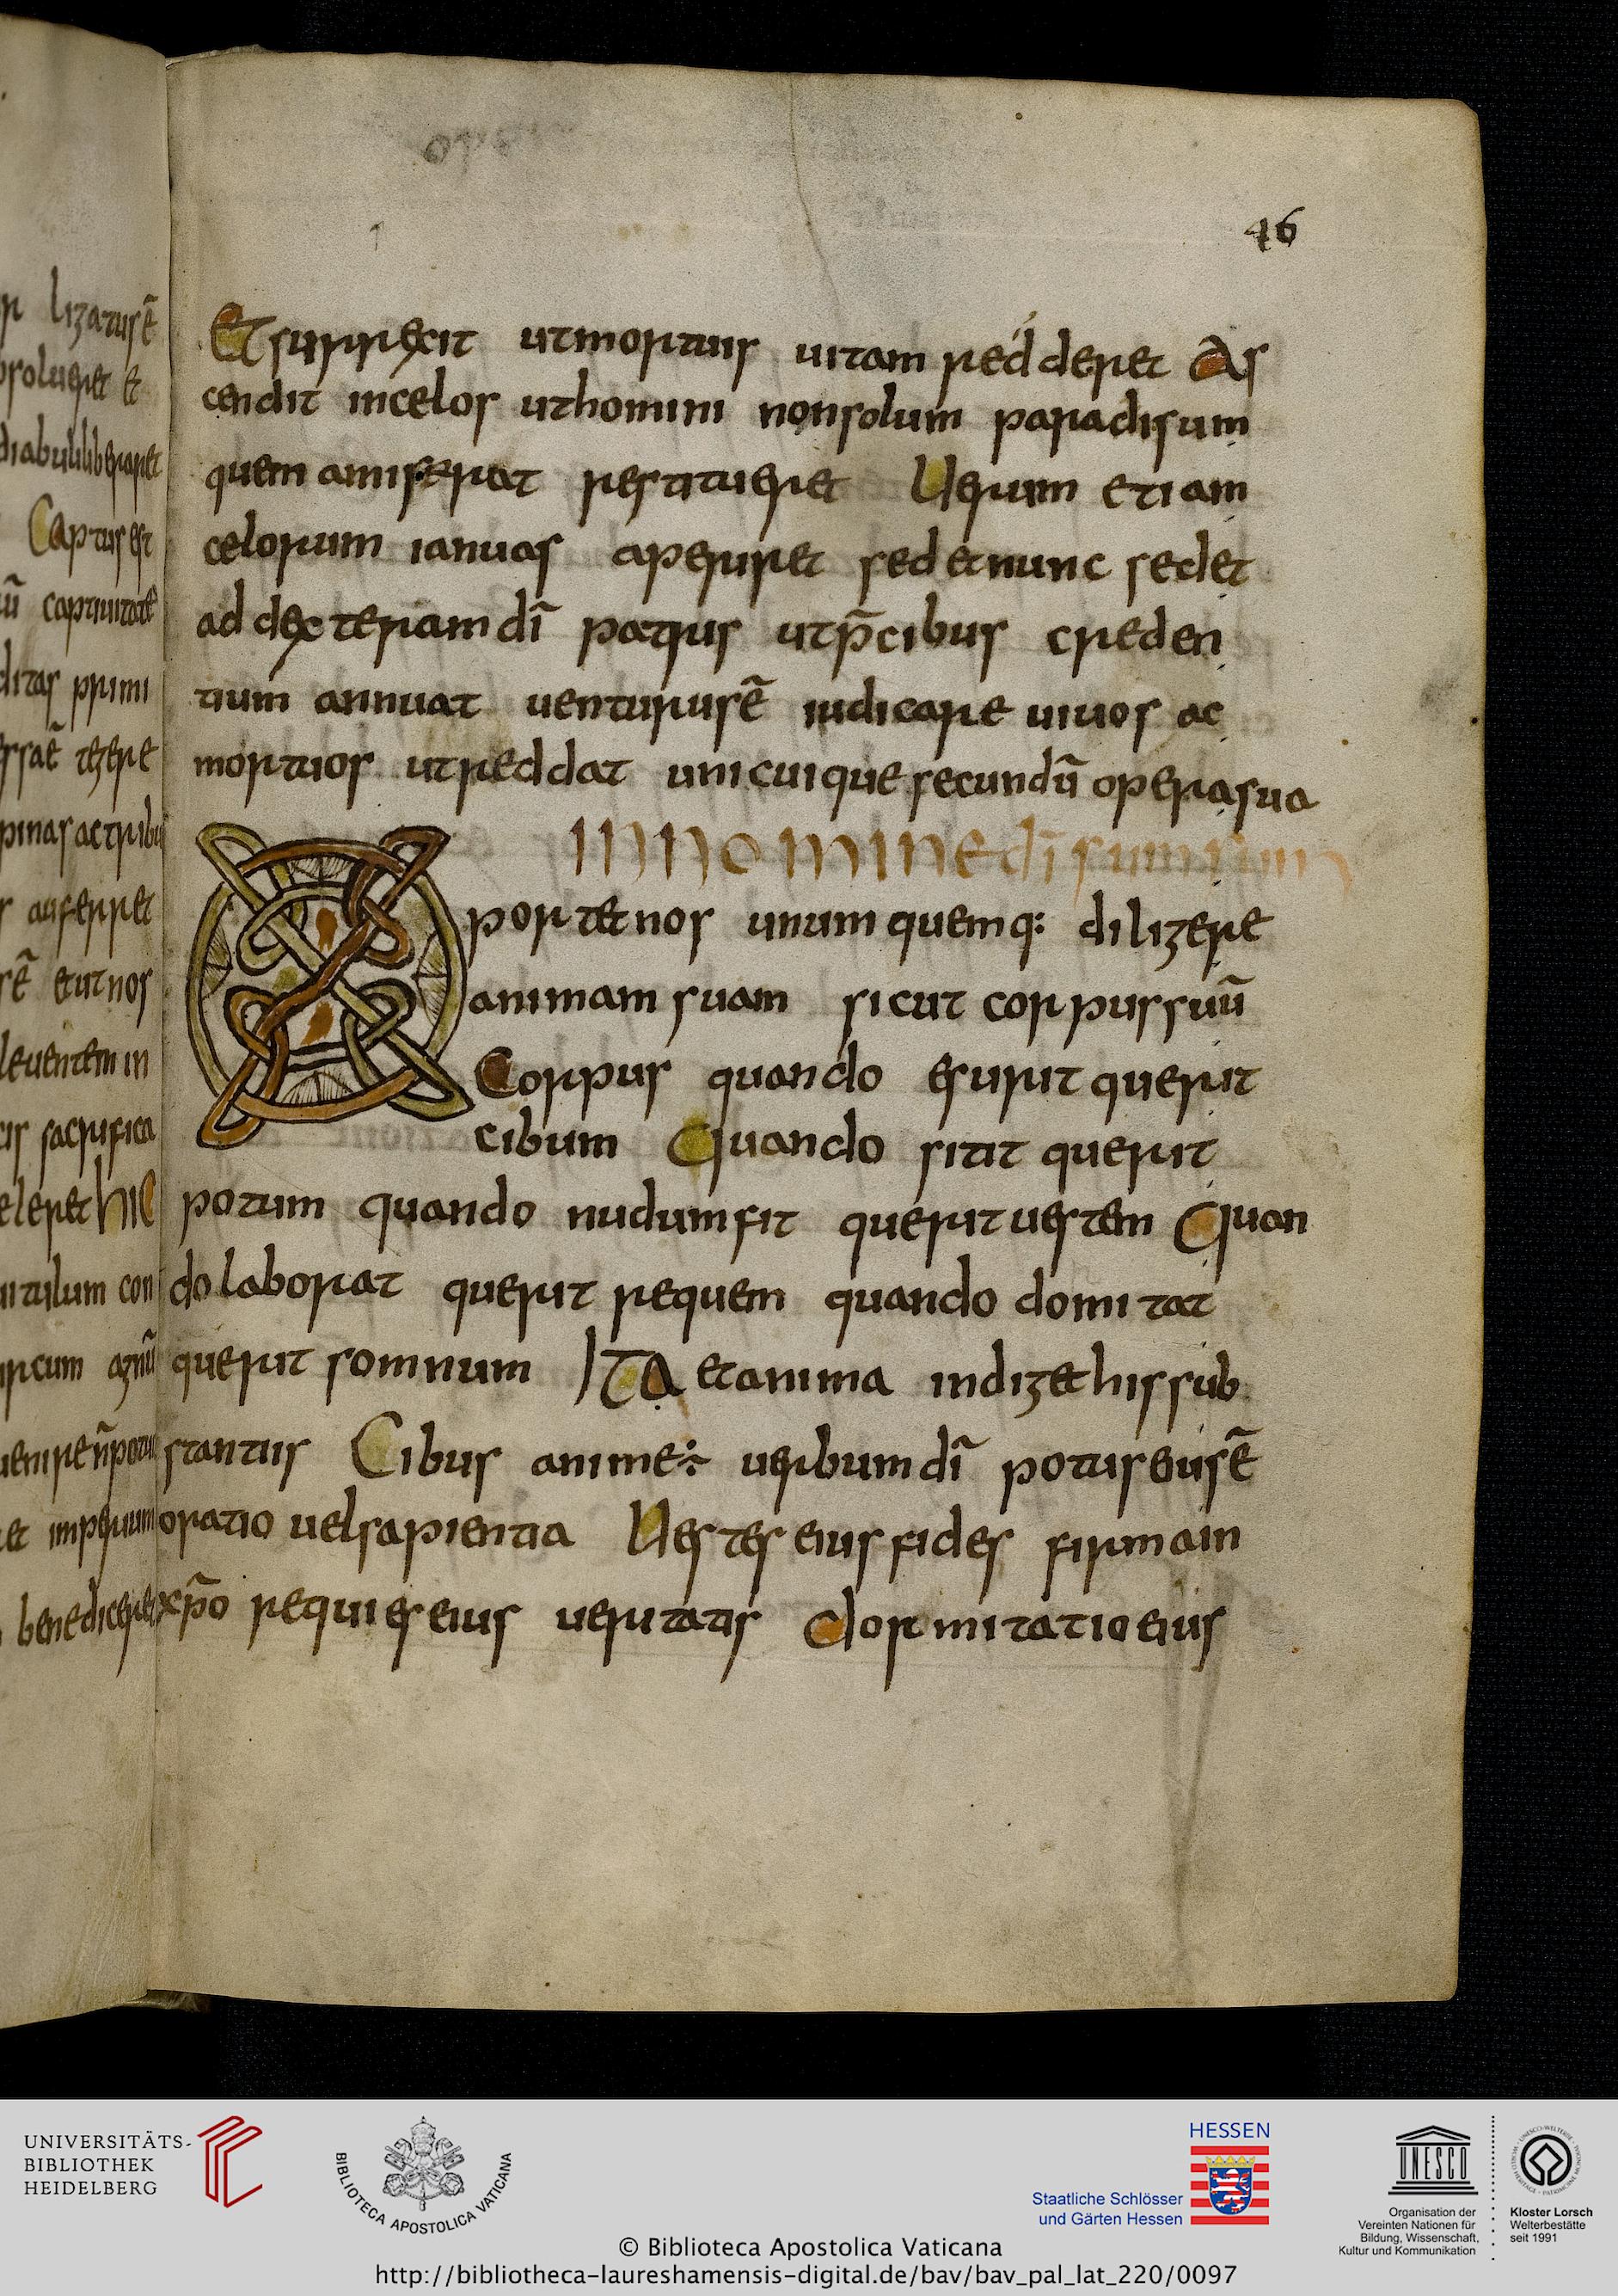 46
Et surrexit ut mortuis uitam redderet As
cendit in celos ut homini non solum paradisum
quem amiserat restitueret Uerum etiam
celorum ianuas aperiret sed et nunc sedet
ad dexteram dī patris ut p̄cibus creden
tium annuat uenturus ē iudicare uiuos ac
mortuos ut reddat unicuique secundū opera sua
IN nomine dī summi
Oportet nos unumquemq: diligere
animam suam sicut corpus suū
Corpus quando esurit querit
cibum Quando sitit querit
potum quando nudum fit querit uestem Quan
do laborat querit requem quando domitat
querit somnum ITA et anima indiget his sub
stantiis Cibus anime÷ uerbum dī potus eius ē
oratio uel sapientia Uestes eius fides firma in
xp̄o requies eius ueritatis dormitatio eius
lizatus ē
solueret et
diabuli liberaret
Captus est
ū captiuitatē
ditas primi
tegere
spinas ac tribu
auferret
ē et ut nos
in
sacrifica
leret hic
uitulum con
ircum agnū
uenire n̄ potu
et imperium
benedicere
UNIVERSITÄTS-
BIBLIOTHEK
HEIDELBERG
BIBLIOTECA APOSTOLICA VATICANA
HESSEN
Staatliche Schlösser
und Gärten Hessen
UNESCO
Organisation der
Vereinten Nationen für
Bildung, Wissenschaft,
Kultur und Kommunikation
Kloster Lorsch
Welterbestätte
seit 1991
© Biblioteca Apostolica Vaticana
http://bibliotheca-laureshamensis-digital.de/bav/bav_pal_lat_220/0097